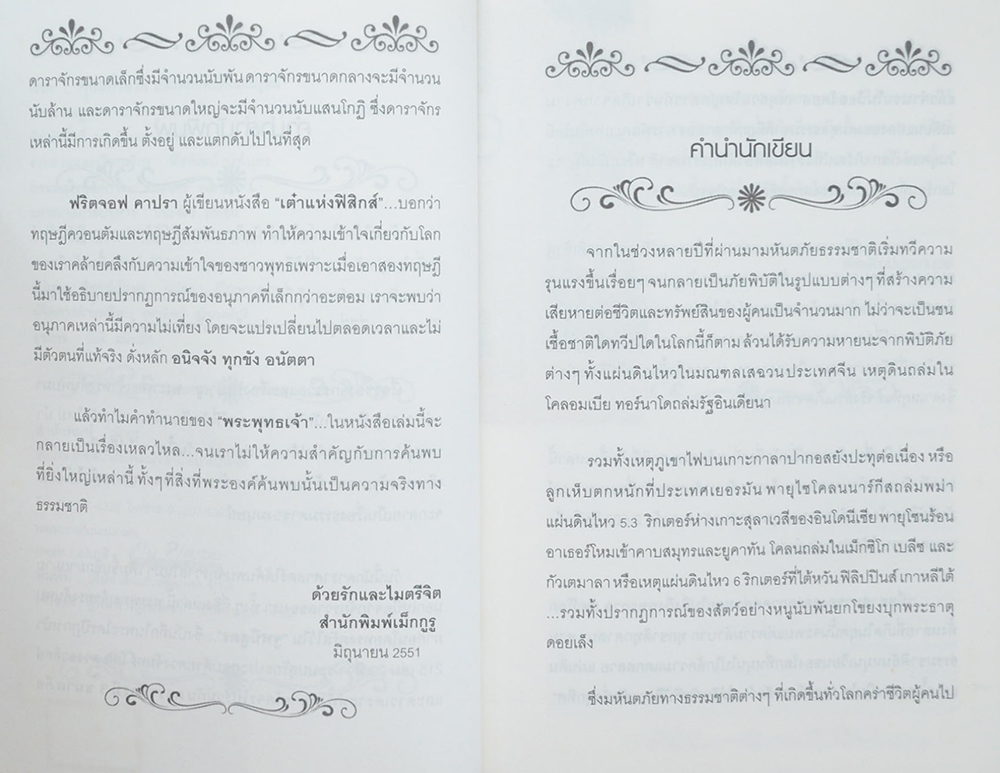 ดาราจักรขนาดเล็กซึ่งมีจำนวนนับพัน ดาราจักรขนาดกลางจะมีจำนวน
นับล้าน และดาราจักรขนาดใหญ่จะมีจำนวนนับแสนโกฏิ ซึ่งดาราจักร
เหล่านี้มีการเกิดขึ้น ตั้งอยู่ และแตกดับไปในที่สุด
ฟริตจอฟ คาปรา ผู้เขียนหนังสือ “เต๋าแห่งฟิสิกส์”...บอกว่า
ทฤษฎีควอนตัมและทฤษฎีสัมพันธภาพ ทำให้ความเข้าใจเกี่ยวกับโลก
ของเราคล้ายคลึงกับความเข้าใจของชาวพุทธเพราะเมื่อเอาสองทฤษฎี
นี้มาใช้อธิบายปรากฏการณ์ของอนุภาคที่เล็กกว่าอะตอม เราจะพบว่า
อนุภาคเหล่านี้มีความไม่เที่ยง โดยจะแปรเปลี่ยนไปตลอดเวลาและไม่
มีตัวตนที่แท้จริง ดั่งหลัก อนิจจัง ทุกขัง อนัตตา
แล้วทำไมคำทำนายของ “พระพุทธเจ้า”...ในหนังสือเล่มนี้จะ
กลายเป็นเรื่องเหลวไหล...จนเราไม่ให้ความสำคัญกับการค้นพบ
ที่ยิ่งใหญ่เหล่านี้ ทั้งๆ ที่สิ่งที่พระองค์ค้นพบนั้นเป็นความจริงทาง
ธรรมชาติ
ด้วยรักและไมตรีจิต
สำนักพิมพ์เม็กกรู
มิถุนายน 2551
คำนำนักเขียน
จากในช่วงหลายปีที่ผ่านมามหันตภัยธรรมชาติเริ่มทวีความ
รุนแรงขึ้นเรื่อยๆ จนกลายเป็นภัยพิบัติในรูปแบบต่างๆ ที่สร้างความ
เสียหายต่อชีวิตและทรัพย์สินของผู้คนเป็นจำนวนมาก ไม่ว่าจะเป็นชน
เชื้อชาติใดทวีปใดในโลกนี้ก็ตาม ล้วนได้รับความหายนะจากพิบัติภัย
ต่างๆ ทั้งแผ่นดินไหวในมณฑลเสฉวนประเทศจีน เหตุดินถล่มใน
โคลอมเบีย ทอร์นาโดถล่มรัฐอินเดียนา
รวมทั้งเหตุภูเขาไฟบนเกาะกาลาปากอสยังปะทุต่อเนื่อง หรือ
ลูกเห็บตกหนักที่ประเทศเยอรมัน พายุไซโคลนนาร์กีสถล่มพม่า
แผ่นดินไหว 5.3 ริกเตอร์ห่างเกาะสุลาเวสีของอินโดนีเซีย พายุโซนร้อน
อาเธอร์โหมเข้าคาบสมุทรและยูคาทัน โคลนถล่มในเม็กซิโก เบลีซ และ
กัวเตมาลา หรือเหตุแผ่นดินไหว 6 ริกเตอร์ที่ไต้หวัน ฟิลิปปินส์ เกาหลีใต้
...รวมทั้งปรากฏการณ์ของสัตว์อย่างหนูนับพันยกโขยงบุกพระธาตุ
ดอยเล็ง
ซึ่งมหันตภัยทางธรรมชาติต่างๆ ที่เกิดขึ้นทั่วโลกคร่าชีวิตผู้คนไป